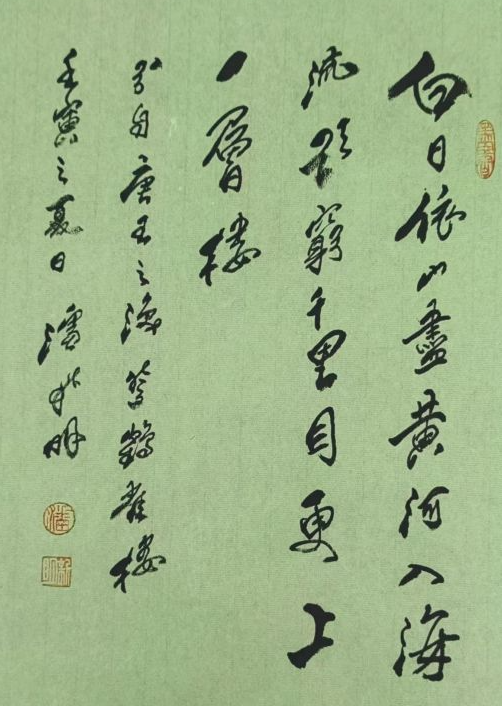 白日依山盡黄河入海
流欲窮千里目更上
一層樓
引自唐王之渙登鶴雀樓
壬寅之夏日 潘新明
潘
新明